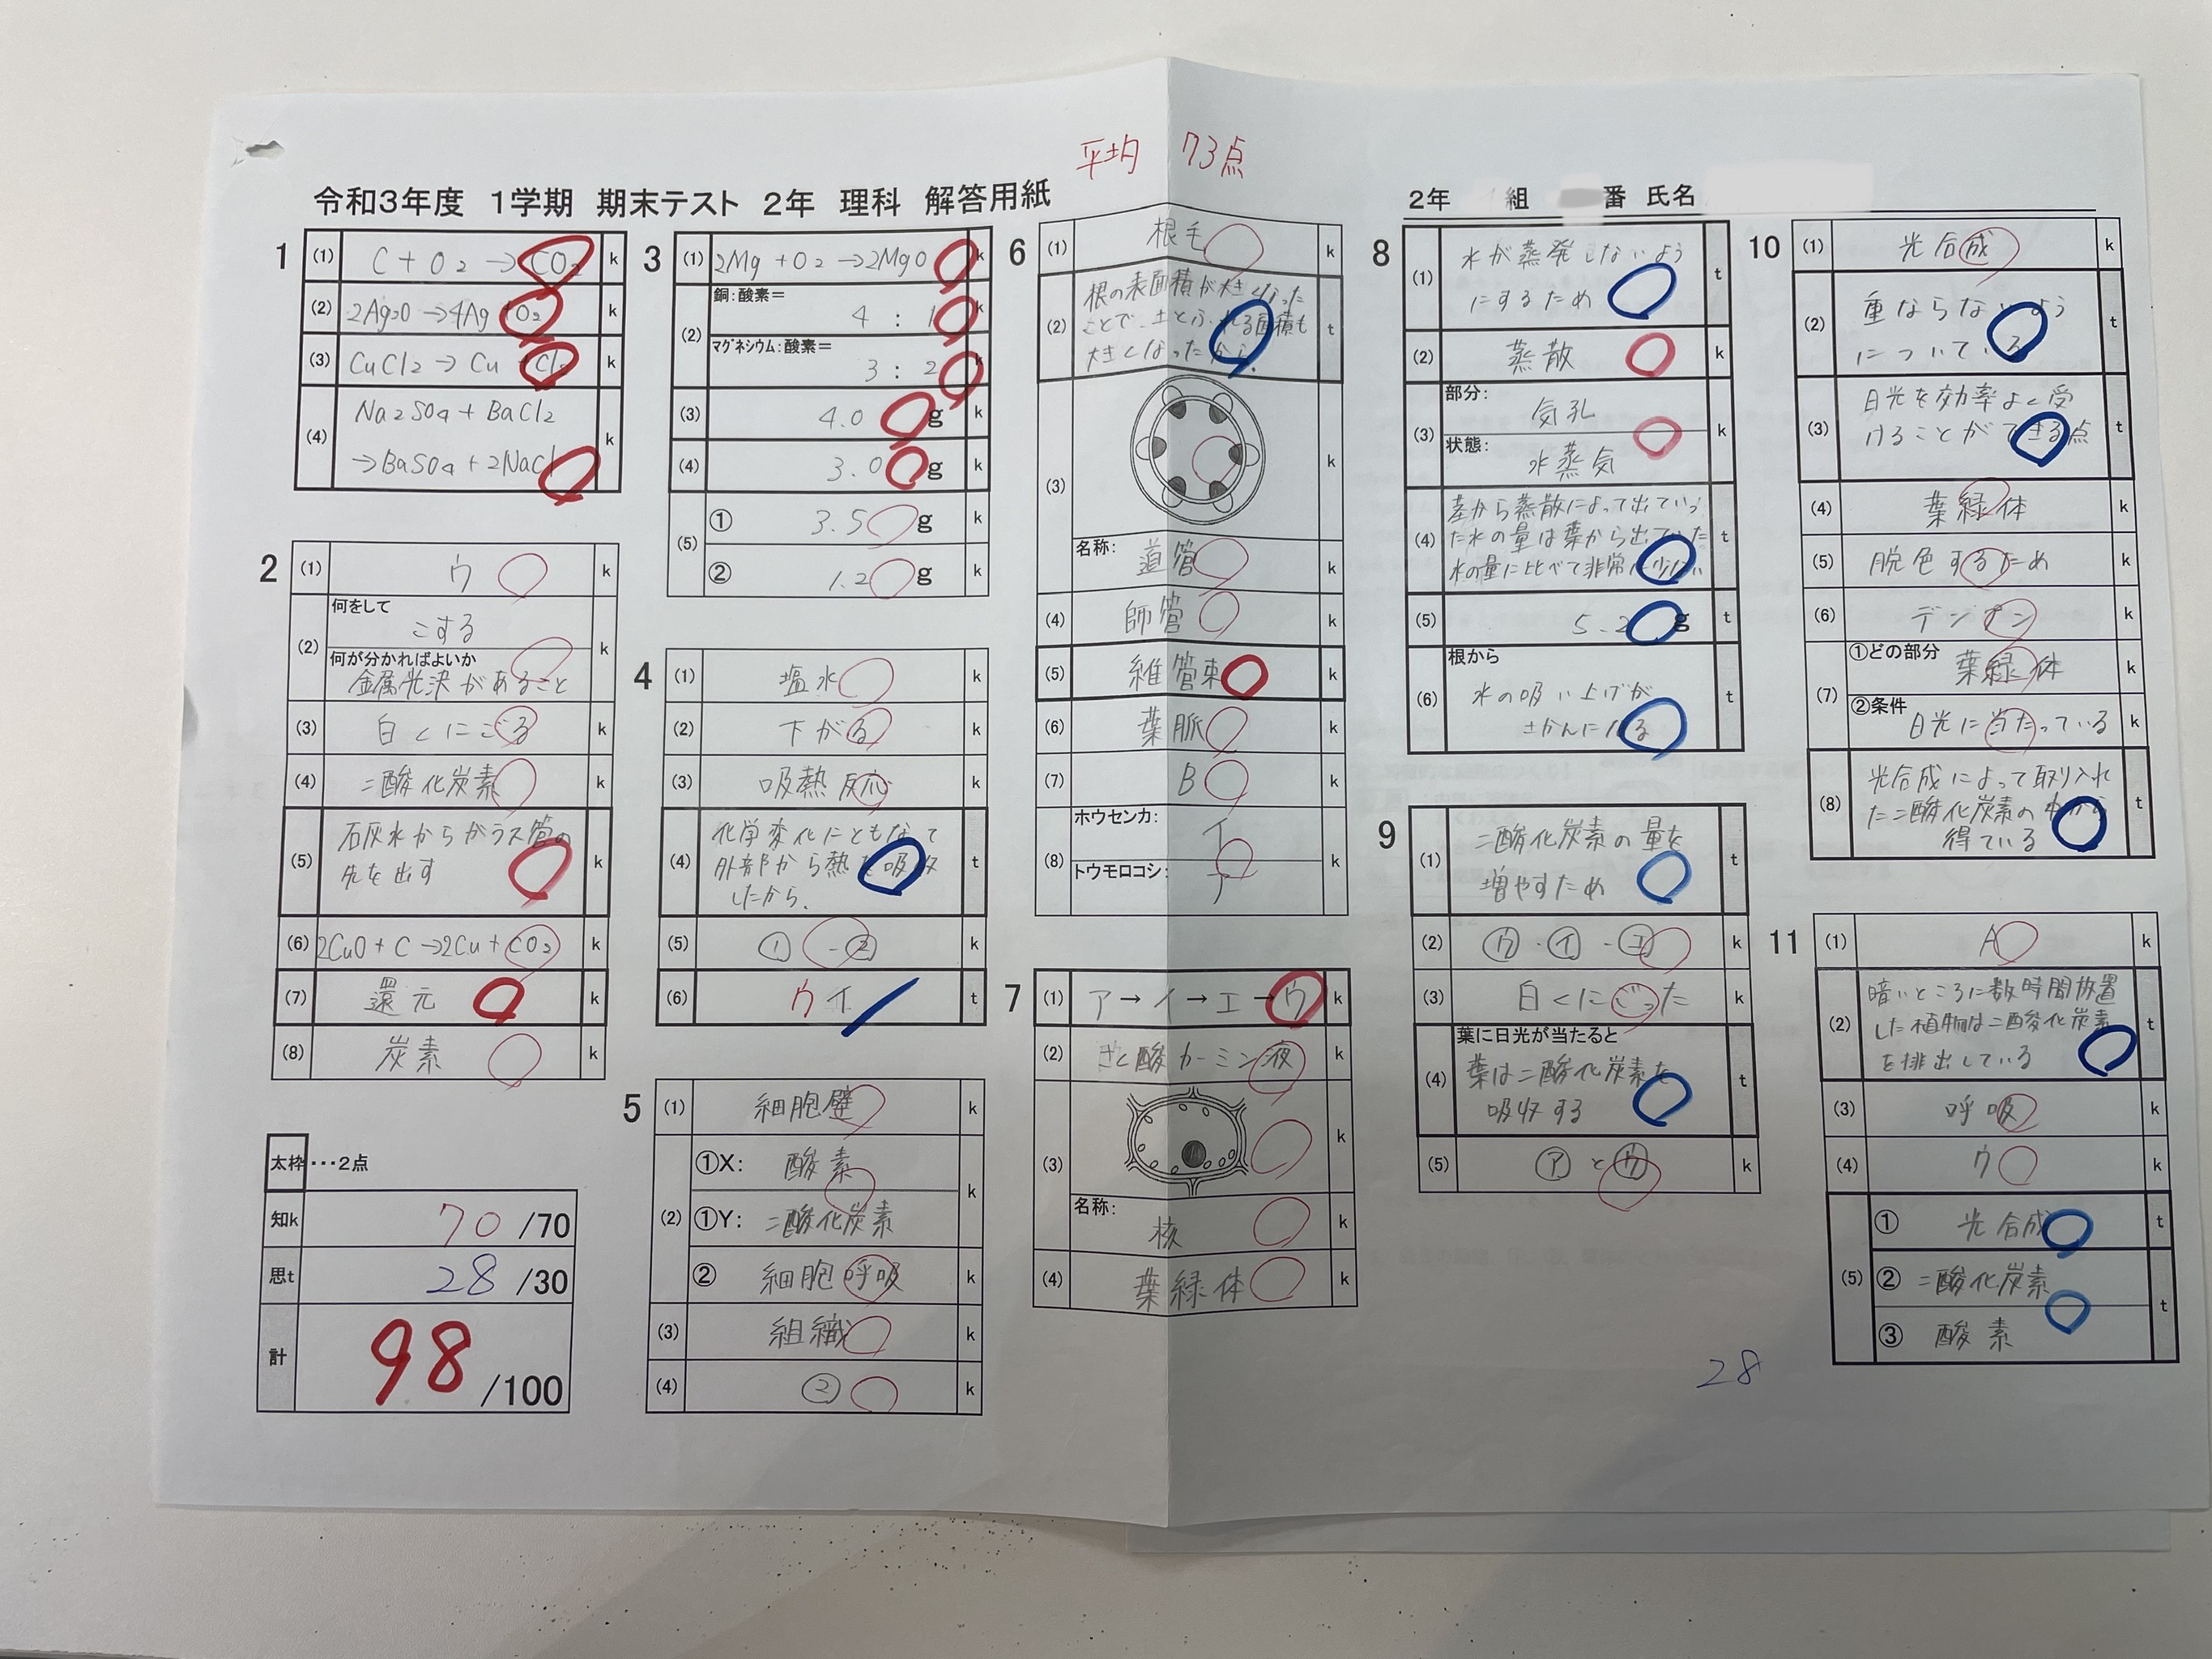 平均 73点
令和3年度 1学期 期末テスト 2年 理科 解答用紙
2年 組 番 氏名
1
(1) C + O2 → CO2 k
(2) 2Ag2O → 4Ag + O2 k
(3) CuCl2 → Cu + Cl2 k
(4) Na2SO4 + BaCl2
→ BaSO4 + 2NaCl k
2
(1) ウ k
(2) 何をして
こする
何が分かればよいか
金属光沢があること k
(3) 白くにごる k
(4) 二酸化炭素 k
(5) 石灰水からガラス管の
先を出す k
(6) 2CuO + C → 2Cu + CO2 k
(7) 還元 k
(8) 炭素 k
太枠・・・2点
知k 70 /70
思t 28 /30
計 98 /100
3
(1) 2Mg + O2 → 2MgO k
(2) 銅:酸素=
4 : 1 k
マグネシウム:酸素=
3 : 2 k
(3) 4.0 g k
(4) 3.0 g k
(5) ① 3.5 g k
② 1.2 g k
4
(1) 塩水 k
(2) 下がる k
(3) 吸熱反応 k
(4) 化学変化にともなって
外部から熱を吸収
したから. t
(5) ① - ② k
(6) ウ イ t
5
(1) 細胞壁 k
(2) ①X: 酸素
①Y: 二酸化炭素 k
② 細胞呼吸 k
(3) 組織 k
(4) ② k
6
(1) 根毛 k
(2) 根の表面積が大きくなった
ことで、土とふれる面積も
大きくなったから. t
(3) k
名称: 道管 k
(4) 師管 k
(5) 維管束 k
(6) 葉脈 k
(7) B k
(8) ホウセンカ: イ
トウモロコシ: ア k
7
(1) ア → イ → エ → ウ k
(2) さく酸カーミン液 k
(3) k
名称: 核 k
(4) 葉緑体 k
8
(1) 水が蒸発しないよう
にするため t
(2) 蒸散 k
(3) 部分: 気孔
状態: 水蒸気 k
(4) 茎から蒸散によって出ていっ
た水の量は葉から出ていった
水の量に比べて非常に少ない t
(5) 5.2 g t
(6) 根から
水の吸い上げが
さかんになる t
9
(1) 二酸化炭素の量を
増やすため t
(2) ウ・イ・エ k
(3) 白くにごった k
(4) 葉に日光が当たると
葉は二酸化炭素を
吸収する t
(5) ア と ウ k
28
10
(1) 光合成 k
(2) 重ならないよう
についている t
(3) 日光を効率よく受
けることができる点 t
(4) 葉緑体 k
(5) 脱色するため k
(6) デンプン k
(7) ①どの部分 葉緑体 k
②条件 日光に当たっている k
(8) 光合成によって取り入れ
た二酸化炭素の中から
得ている t
11
(1) A k
(2) 暗いところに数時間放置
した植物は二酸化炭素
を排出している t
(3) 呼吸 k
(4) ウ k
(5) ① 光合成 t
② 二酸化炭素
③ 酸素 t